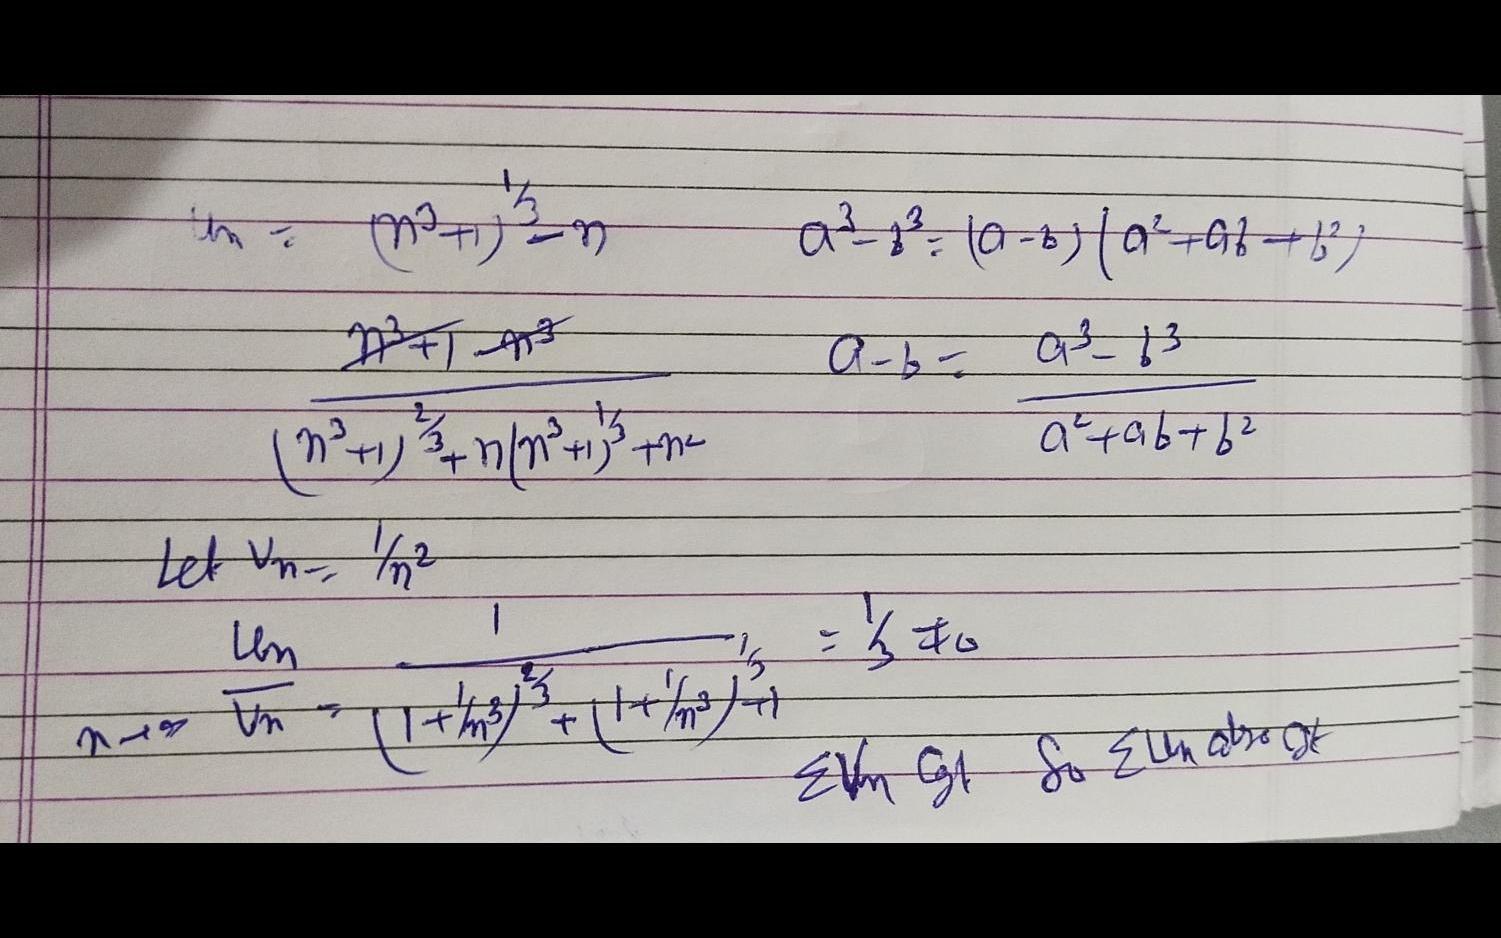 un = (n³+1)^1/3 - n
a³-b³ = (a-b) (a²+ab+b²)
n³+1-n³
(n³+1)^2/3 + n(n³+1)^1/3 + n²
a-b = a³-b³
a²+ab+b²
Let Vn = 1/n²
Un 1 = 1/3 ≠0
n→∞ Vn = (1+1/n³)^2/3 + (1+1/n³)^1/3 +1
ΣVn Cgt So ΣUn also Cgt